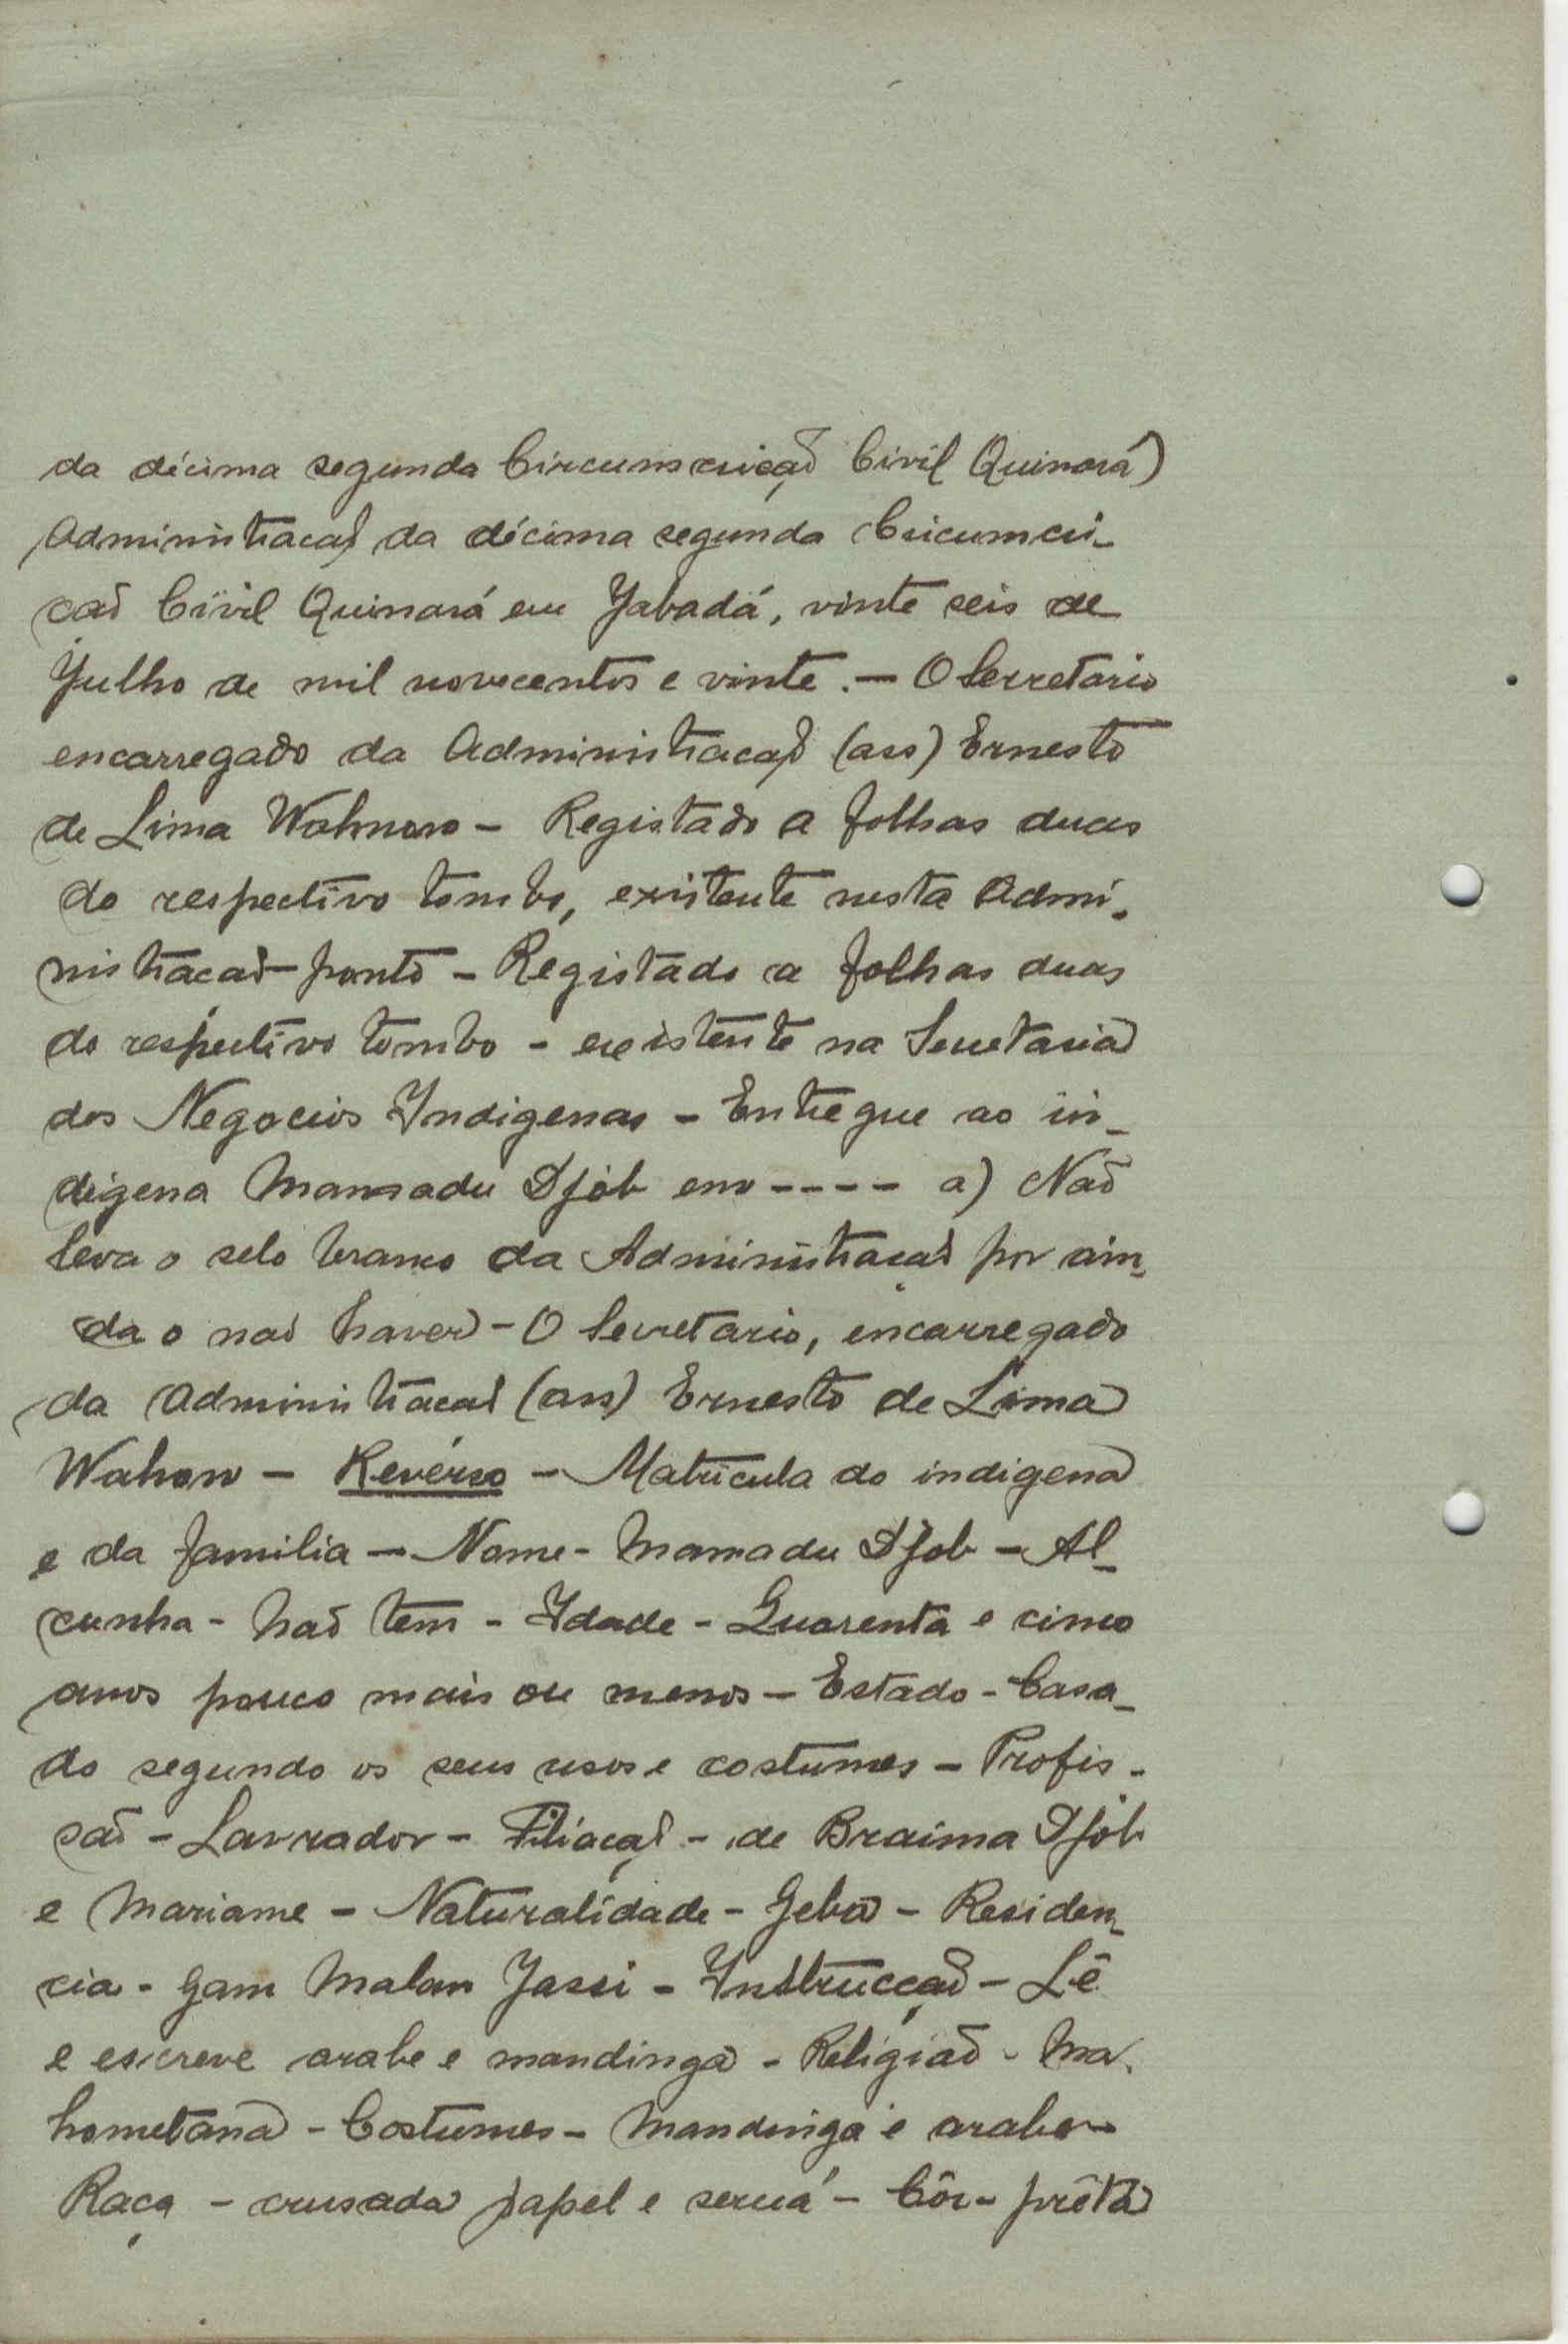 da décima segunda Circumscrição Civil Quinará)
Administração da décima segunda Circumcri-
cão Civil Quinará em Jabadá, vinte seis de
Julho de mil novecentos e vinte. — O Secretario
encarregado da Administração (ass) Ernesto
de Lima Wahnon — Registado a folhas duas
do respectivo tombo, existente nesta Admi-
nistracão ponto - Registado a folhas duas
do respectivo tombo - existente na Secretaria
dos Negocios Indigenas - Entregue ao in-
digena Mamadu Djób em ---- a) Não
leva o selo branco da Administração por ain-
da o não haver - O Secretario, encarregado
da Administracão (ass) Ernesto de Lima
Wahon — Revérso — Matricula do indigena
e da familia — Nome - Mamadu Djob — Al-
cunha - Não tem - Idade - Quarenta e cinco
anos pouco mais ou menos — Estado - Casa-
do segundo os seus usos e costumes — Profis-
são - Lavrador - Filiação - de Braima Djób
e Mariame - Naturalidade - Geba - Residen-
cia - Gam Malan Jassi - Instrucção - Lê
e escreve arabe e mandinga - Religião - Ma-
hometana - Costumes - Mandinga e arabe -
Raça - crusada papel e - Côr - prêta